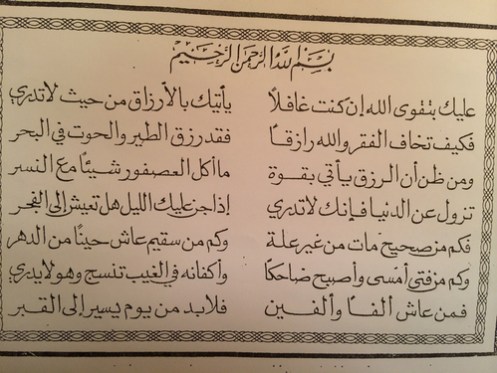 بسم الله الرحمن الرحيم
عليك بتقوى الله إن كنت غافلاً يأتيك بالأرزاق من حيث لاتدري
فكيف تخاف الفقر والله رازقاً فقد رزق الطير والحوت في البحر
ومن ظن أن الرزق يأتي بقوة ماأكل العصفور شيئاً مع النسر
تزول عن الدنيا فإنك لاتدري إذا جن عليك الليل هل تعيش إلى الفجر
فكم من صحيح مات من غير علة وكم من سقيم عاش حيناً من الدهر
وكم من فتى أمسى وأصبح ضاحكاً وأكفانه في الغيب تنسج وهو لايدري
فمن عاش ألفاً وألفين فلابد من يوم يسير إلى القبر